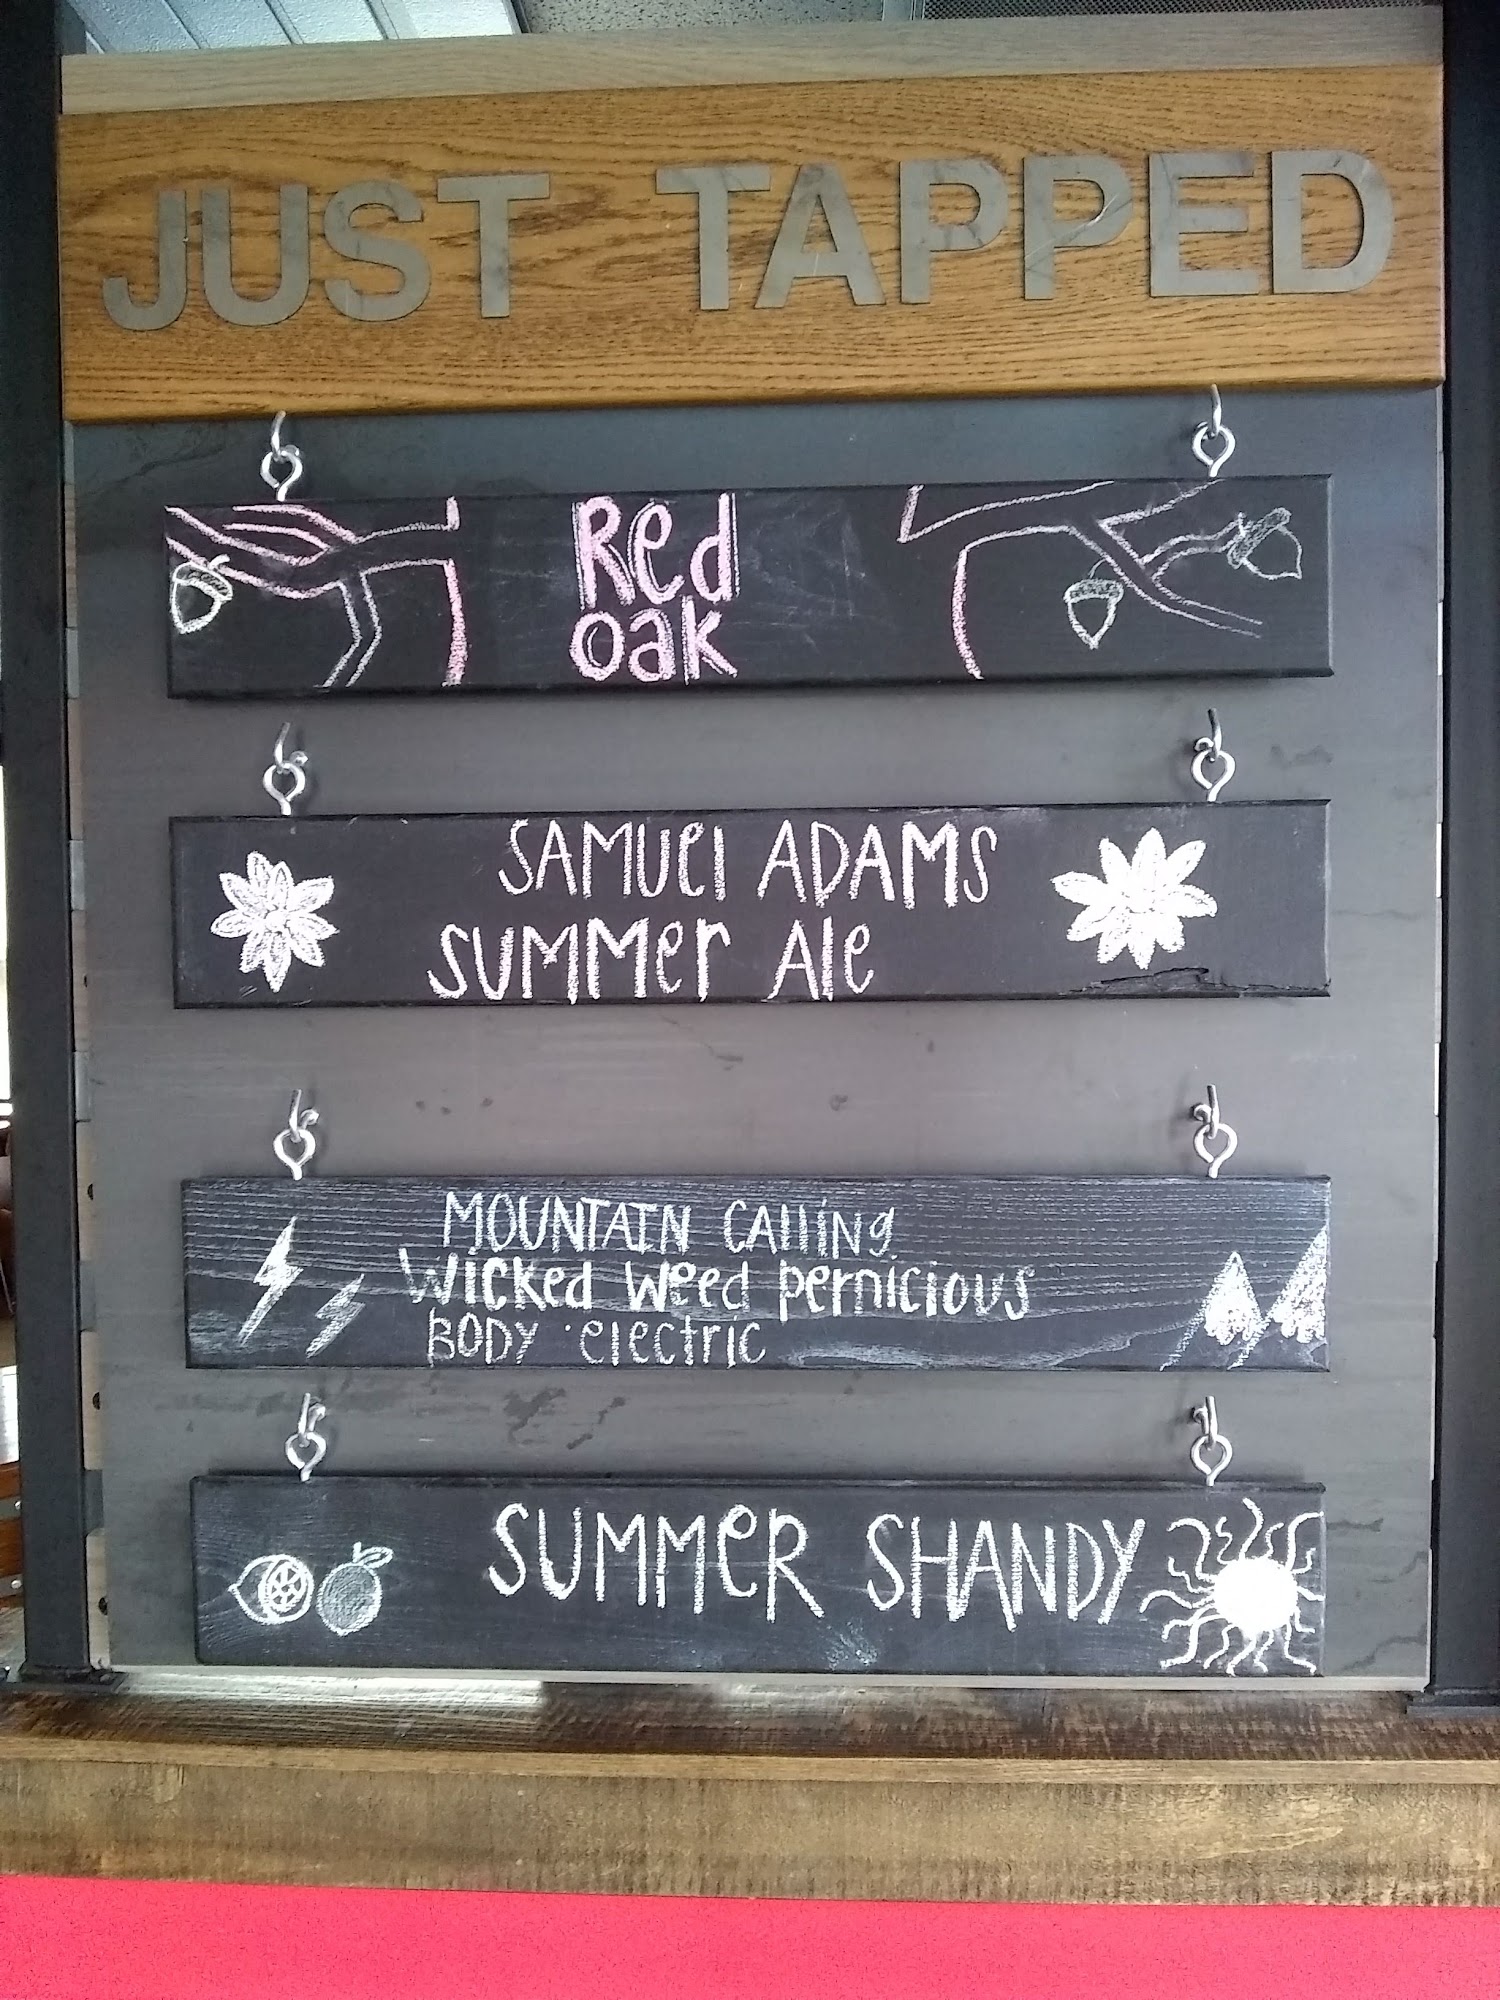 JUST TAPPED
Red
oak
SAMUel ADAMS
SUMMer Ale
MOUNTAIN CAlling
Wicked Weed pernicious
BODY · electric
SUMMeR SHANDY